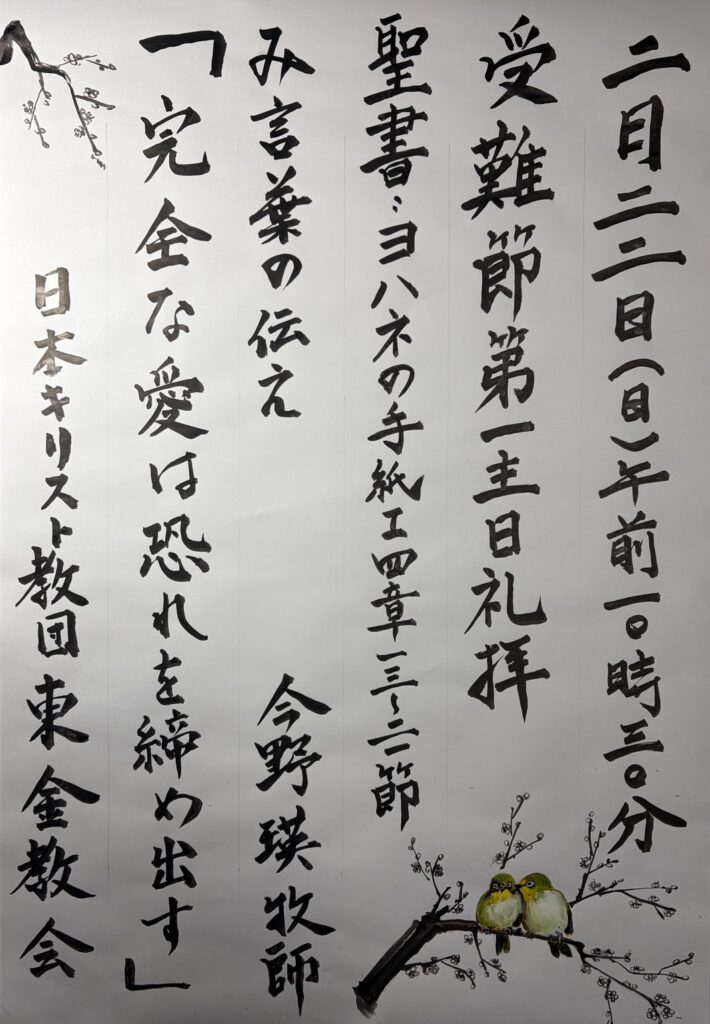 二月二二日(日)午前一〇時三〇分
受難節第一主日礼拝
聖書:ヨハネの手紙Ⅰ四章一三~二一節
み言葉の伝え 今野瑛牧師
「完全な愛は恐れを締め出す」
日本キリスト教団東金教会